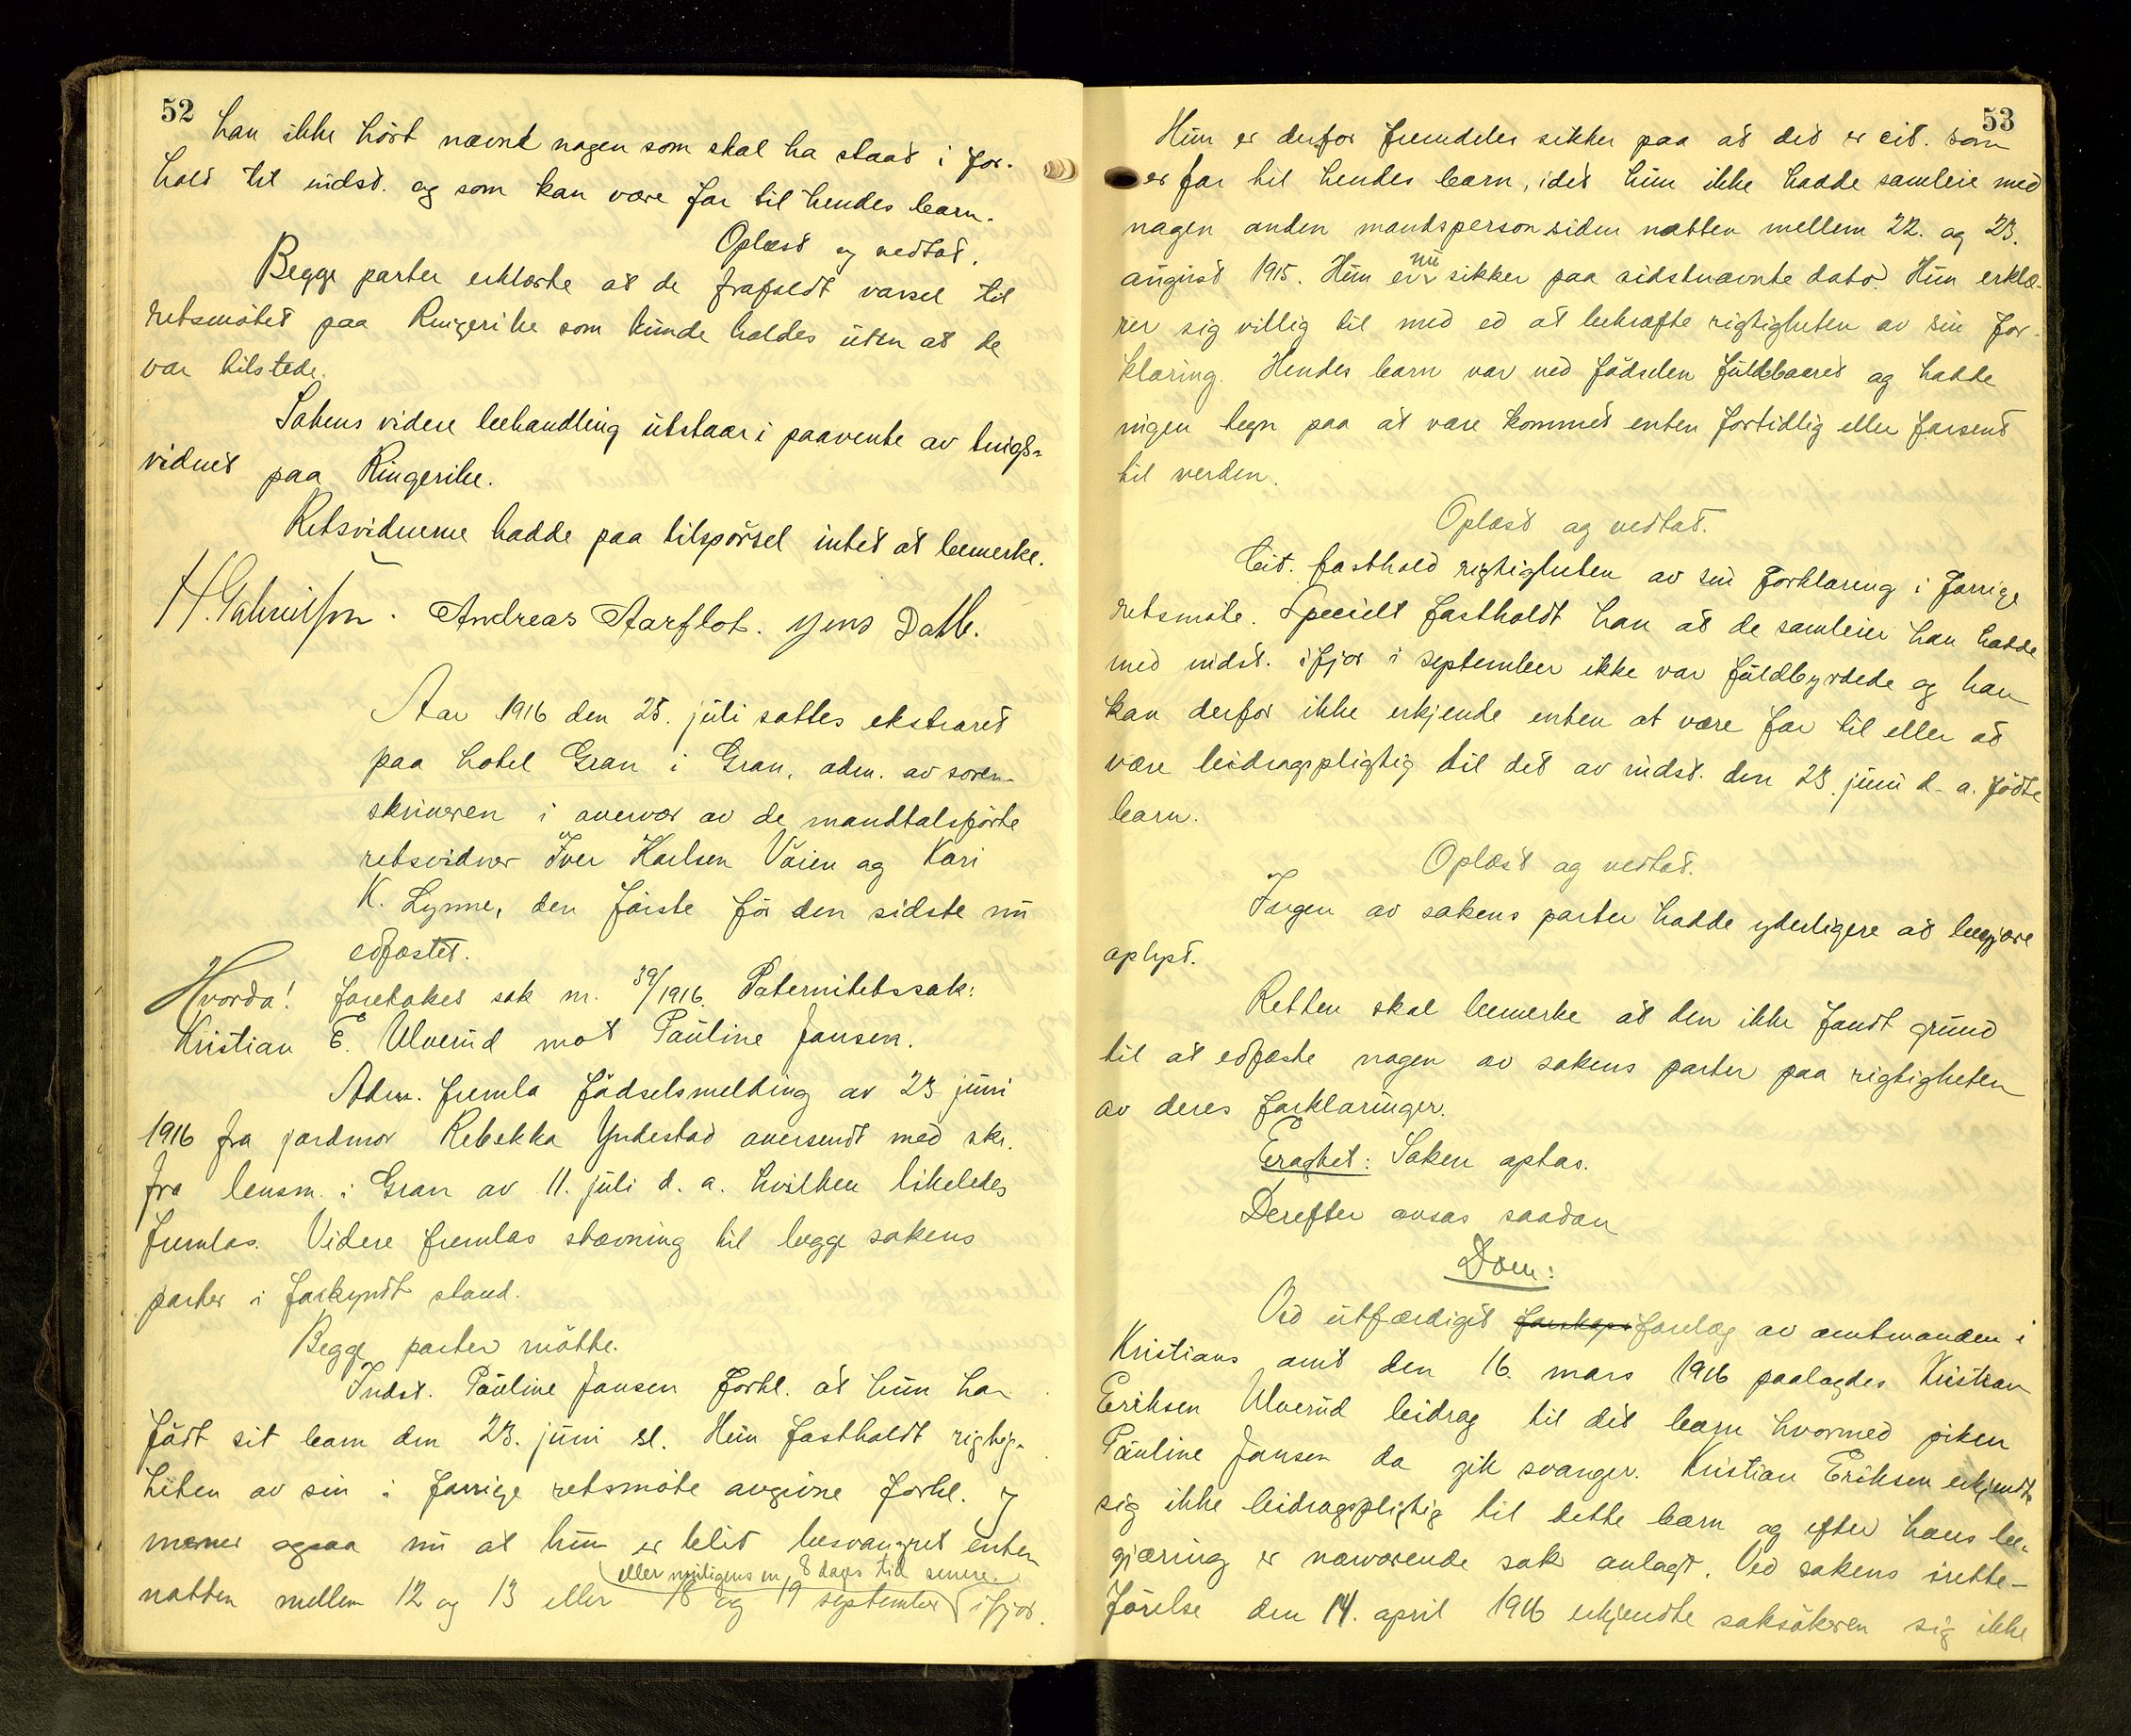 52
han ikke hört nævnt nogen som skal ha staat i for-
hold til indst. og som kan være far til hendes barn.
Oplæst og vedtat.
Begge parter erklærte at de frafaldt varsel til
retsmötet paa Ringerike som kunde holdes uten at de
var tilstede.
Sakens videre behandling utstaar i paavente av tings-
vidnet paa Ringerike.
Retsvidnerne hadde paa tilspörsel intet at bemerke.
Andreas Aarflot. Jens Dahl.
Aar 1916 den 25. juli sattes ekstraret
paa hotel Gran i Gran, adm. av soren-
skriveren i overvær av de mandtalsförte
retsvidner Iver Karlsen Våien og Kari
K. Lynne, den förste för den sidste nu
edfæstet.
Hvorda! foretokes sak nr. 39/1916. Paternitetssak:
Kristian E. Ulverud mot Pauline Jansen.
Adm. fremla födselsmelding av 23 juni
1916 fra jordmor Rebekka Yndestad oversendt med skr.
fra lensm. i Gran av 11. juli d. a. hvilken likeledes
fremlas. Videre fremlas stævning til begge sakens
parter i forkyndt stand.
Begge parter mötte.
Indst. Pauline Jansen forkl. at hun har
födt sit barn den 23. juni sl. Hun fastholdt rigtig-
heten av sin i forrige retsmöte avgivne forkl. og
mener ogsaa nu at hun er blit besvangret enten
eller muligens en 8 dages tid senere.
natten mellem 12 og 13 eller 18 og 19 september ifjor.
53
Hun er derfor fremdeles sikker paa at det er cit. som
er far til hendes barn, idet hun ikke hadde samleie med
nogen anden mandsperson siden natten mellem 22. og 23.
nu
august 1915. Hun er sikker paa sidstnævnte dato. Hun erklæ-
rer sig villig til med ed at bekræfte rigtigheten av sin for-
klaring. Hendes barn var ved födselen fuldbaaret og hadde
ingen tegn paa at være kommet enten fortidlig eller forsent
til verden.
Oplæst og vedtat.
Cit. fasthold rigtigheten av sin forklaring i forrige
retsmöte. Specielt fastholdt han at de samleier han hadde
med indst. ifjor i september ikke var fuldbyrdede og han
kan derfor ikke erkjende enten at være far til eller at
være bidragspligtig til det av indst. den 23. juni d. a. födte
barn.
Oplæst og vedtat.
Ingen av sakens parter hadde yderligere at begjære
oplyst.
Retten skal bemerke at den ikke fandt grund
til at edfæste nogen av sakens parter paa rigtigheten
av deres forklaringer.
Eragtet: Saken optas.
Derefter avsas saadan
Dom:
Ved utfærdiget forelæg av amtmanden i
Kristians amt den 16. mars 1916 paalagdes Kristian
Eriksen Ulverud bidrag til det barn hvormed piken
Pauline Jansen da gik svanger. Kristian Eriksen erkjendte
sig ikke bidragspligtig til dette barn og efter hans be-
gjæring er nærværende sak anlagt. Ved sakens irette-
förelse den 14. april 1916 erkjendte saksökeren sig ikke